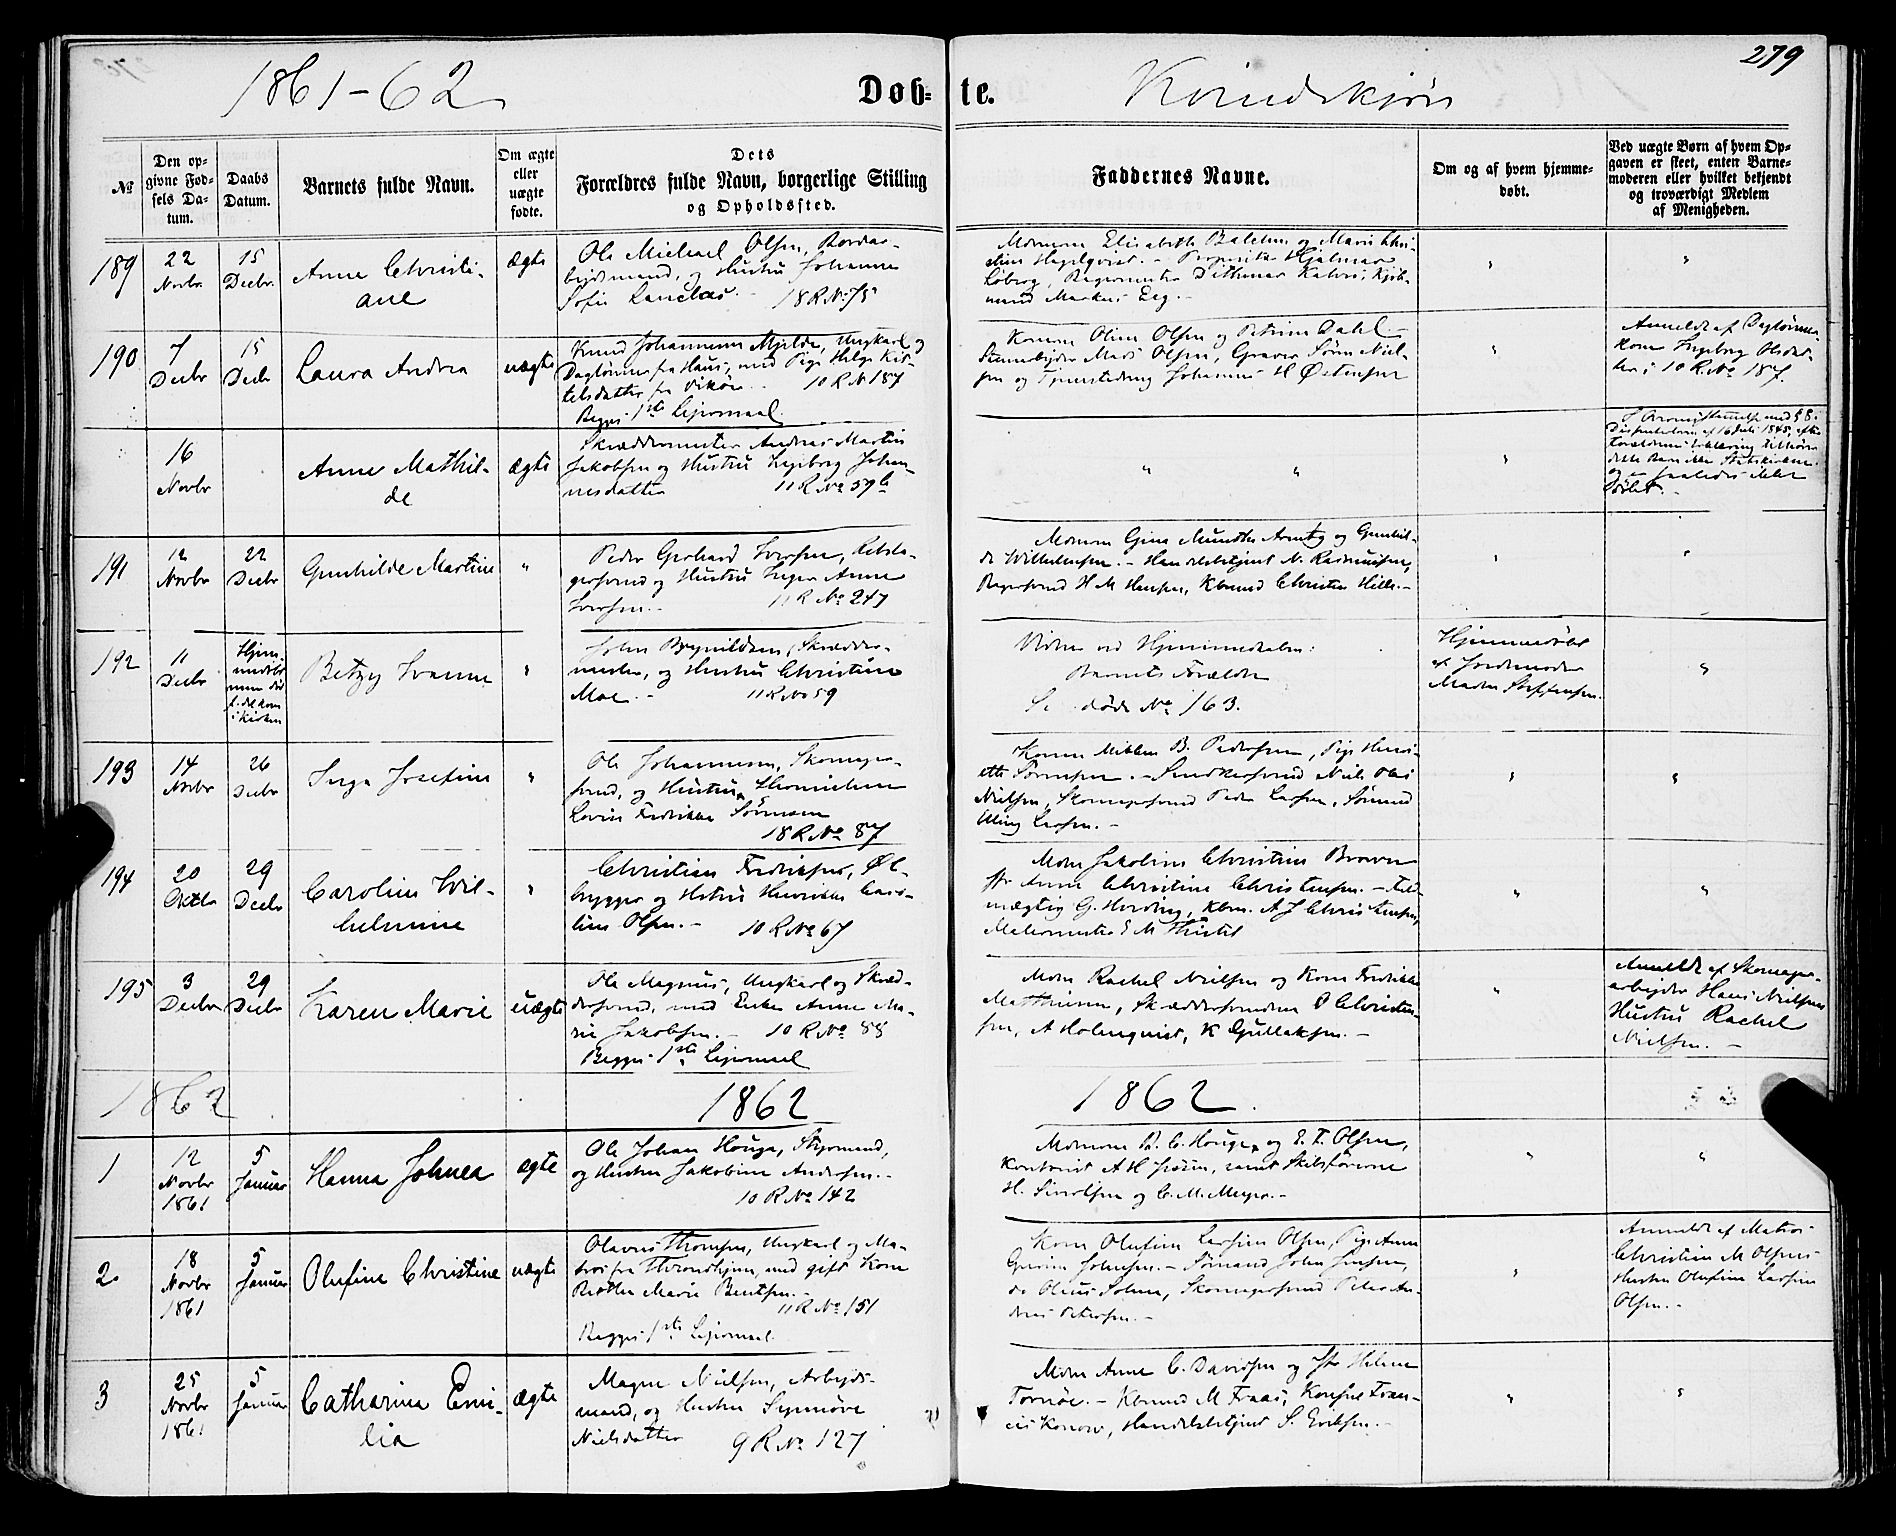 279
1861-62
Døb- te.
Kvindekjøn
№
Den op-
givne Fød-
sels Da-
tum.
Daabs
Datum.
Barnets fulde Navn.
Om ægte
eller
uægte
fødte.
Dets
Forældres fulde Navn, borgerlige Stilling
og Opholdssted.
Faddernes Navne.
Om og af hvem hjemme-
døbt.
Ved uægte Børn af hvem Op-
gaven er skeet, enten Barne-
moderen eller hvilket bekjendt
og troværdigt Medlem
af Menigheden.
189
22
Novbr.
15
Decbr.
Anne Christi-
ane
ægte
Ole Michael Olsen,
og Hustru Johanne
Sofie
18 R. No 75
Elisabeth og Marie Chri-
stine Hagelqvist. - Hjalmar
Løberg,
Markus Eeg. -
"
"
190
7
Decbr
15
Decbr
Laura Andrea
uægte
Knud Johannesen Mjelde, Ungkarl og
Daglønner fra Haus, med Pige Helge Kit-
telsdatter fra Vikør. 10 R. No 187
Begges 1ste Leiermaal.
Konen Oline Olsen og Petrine Dahl -
Mads Olsen, Graver Søren Niel-
sen og Johannes H Østensen
"
Anmeldt af Daglønner-
kone Ingeborg Olsdat-
ter i 10 R. No 187.
16
Novbr
Anne Mathil-
de
ægte
Skræddermester Andreas Martin
Jakobsen og Hustru Ingeborg Johan-
nesdatter 11 R No 59b
" "
"
I Overensstemmelse med § 8 i
af 16 Juli 1845, efter
Forældrenes Erklæring tilhører
dette Barn ikke Statskirken
og er saaledes ikke
døbt. -
191
12
Novbr
22
Decbr
Gunhilde Martine
"
Peder Gerhard Iversen, Rebsla-
gersvend og Hustru Inger Anne
Iversen. - 11 R No 247
Gina Arentz og Gunhil-
de Wilhelmsen. - Handelsbetjent N. Rasmussen,
Bagersvend H M Hansen, Kbmand Christen Hille. -
"
"
192
11
Decbr
Hjem-
medøbt
men død
f. det kom
i Kirken
Betzy Ivanne
"
John Brynildsen, Skrædder-
mester, og Hustru Christine
Moe. - 11 R No 59
Vidner ved Hjemmedaaben:
Barnets Forældre
Se døde No 163.
Hjemmedøbt
af Jordmoder
Madm Steffensen.
"
193
14
Novbr
26
Decbr
Inga Josefine
"
Ole Johannesen, Skomager-
svend, og Hustru Thomine
Lovise Fredrikke Sørensen
18 R No 87
Konen B. Pedersen, Pige Henri-
ette Sørensen. - Snedkersvend Niels Olai
Nielsen, Skomagersvend Peder Larsen, Sømand
Larsen. -
"
"
194
20
Oktbr
29
Decbr
Caroline Wil-
helmine
"
Christian Fredriksen, Øl-
brygger og Hustru Henrikke Caro-
line Olsen. - 10 R No 67
Mdm Jakobine Christine Brown
Jfr Anne Christine Christensen. - Fuld-
mægtig G. Herding, Kbm. A J Christensen,
Malermester E M
"
"
195
3
Decbr
29
Decbr
Karen Marie
uægte
Ole Magnus, Ungkarl og Skræd-
dersvend, med Enke Anne Ma-
rie Jakobsen. - 10 R No 88
Begges 1ste Leiermaal
Mdm Rachel Nielsen og Kone Fredrikke
Matthiesen, Skræddersvendene O Christen-
sen, A Holmqvist, K Gullaksen. -
"
Anmeldt af Skomager-
arbeider Hans Nielsens
Hustru Rachel
Nielsen. -
1862
1862
1862.
1
12
Novbr
1861
5
Januar
Hanna Johnea
ægte
Ole Johan Houge, Styrmand,
og Hustru Jakobine Andersen. -
10 R No 142
Mdmm B. C. Houge, og E. T. Olsen,
Kontorist A H samt Skibsførerne
H. og C. M. Meyer. -
"
"
2
18
Novbr
1861
5
Januar
Olufine Christine
uægte
Olavus Thomsen, Ungkarl og Ma-
tros fra Throndhjem, med gift Kone
Marie Bentsen. -
11 R No 151
Begges 1ste Leiermaal
Kone Olufine Larsine Olsen, Pige Anne
Johnsen. - Sømand John Jensen,
Skomagersvend Peter An-
dreas Petersen. -
"
Anmeldt af Matros
Christian M Olsens
Hustru Olufine Larsine
Olsen. -
3
25
Novbr
1861
5
Januar
Catharina Emi-
lia
ægte
Magne Nielsen, Arbeids-
mand, og Hustru Synnøve
Nielsdatter 9 R No 127
Mdm Anne C. Davidsen og Jfr Helene
Tornøe. - Kbmand M Fraas, Konsul Fran-
cis Konow, Handelsbetjent S. Eriksen. -
"
"